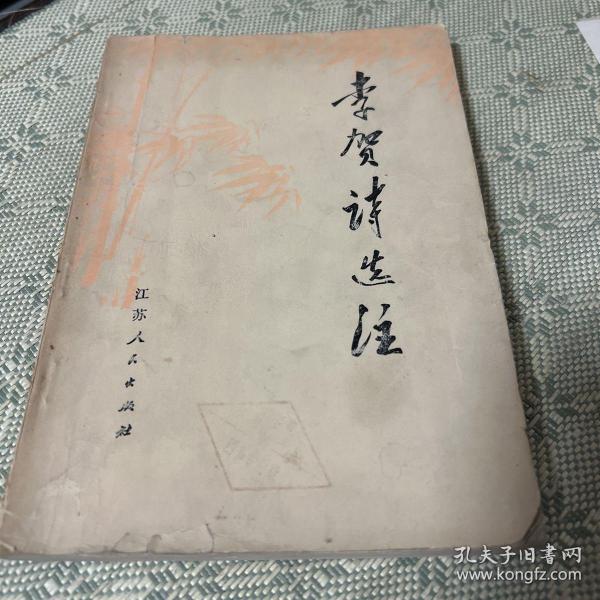 李贺诗选注
江苏人民出版社
孔夫子旧书网
www.kongfz.com